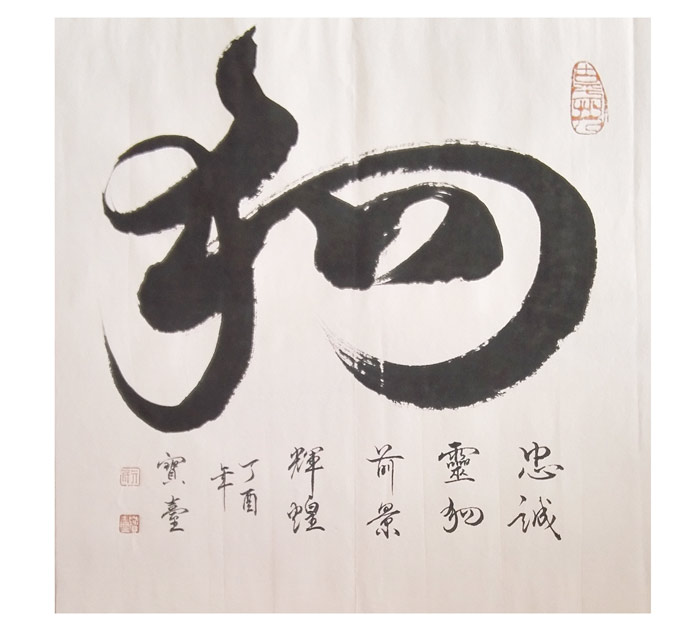 狗
忠誠
靈狗
前景
輝煌
丁酉
年
寶臺